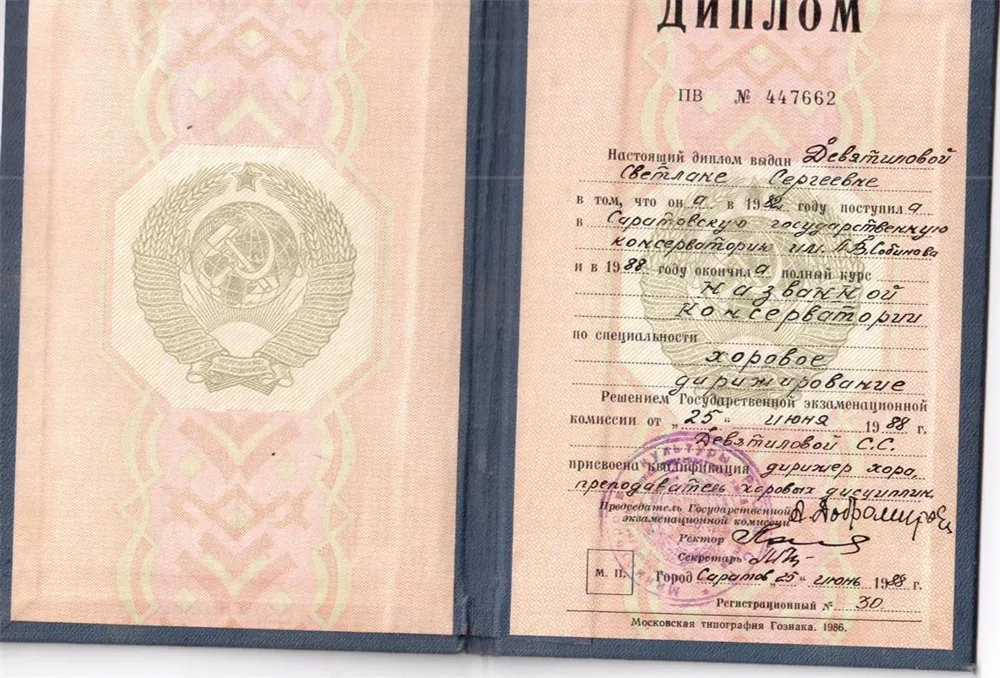 ДИПЛОМ
ПВ № 447662
Настоящий диплом выдан Девятиловой
Светлане Сергеевне
в том, что он а в 1982 году поступил а
в Саратовскую государственную
консерваторию им. Л.В. Собинова
и в 1988 году окончил а полный курс
названной
консерватории
по специальности
хоровое
дирижирование
Решением Государственной экзаменационной
комиссии от „25" июня 1988 г.
Девятиловой С.С.
присвоена квалификация дирижер хора,
преподаватель хоровых дисциплин
Председатель Государственной
экзаменационной комиссии
Ректор
Секретарь
М. П. Город Саратов „25" июнь 1988 г.
Регистрационный № 30.
Московская типография Гознака. 1986.